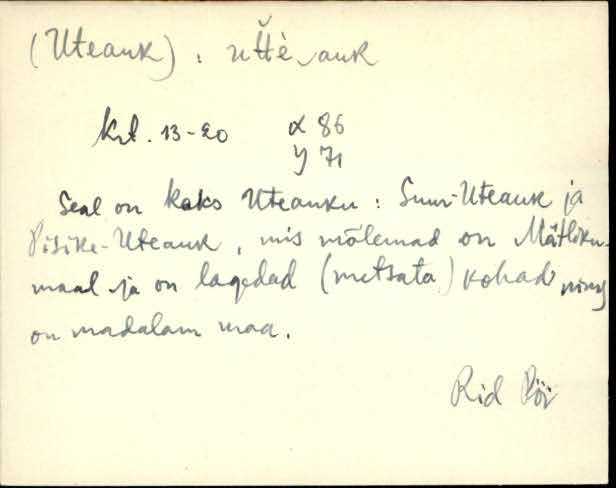 (Uteauk) : uťťè‿auk
krt. 13-20 x 86
y 71
Seal on kaks Uteauku : Suur-Uteauk ja
Pisike-Uteauk, mis mõlemad on Mätliku-
maal ja on lagedad (metsata) kohad ning
on madalam maa.
Rid Pöi